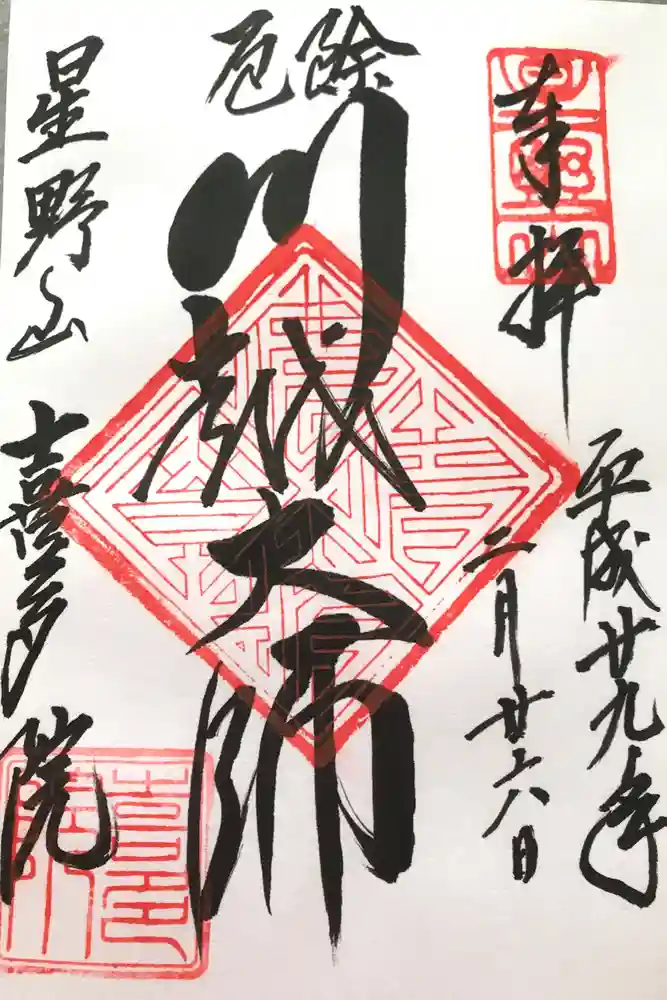 奉拝
平成廿九年
二月廿六日
厄除
川越大師
星野山
喜多院